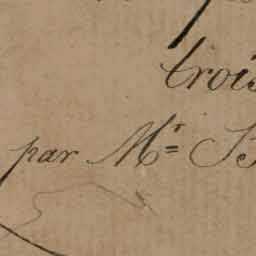 trois
par Mr